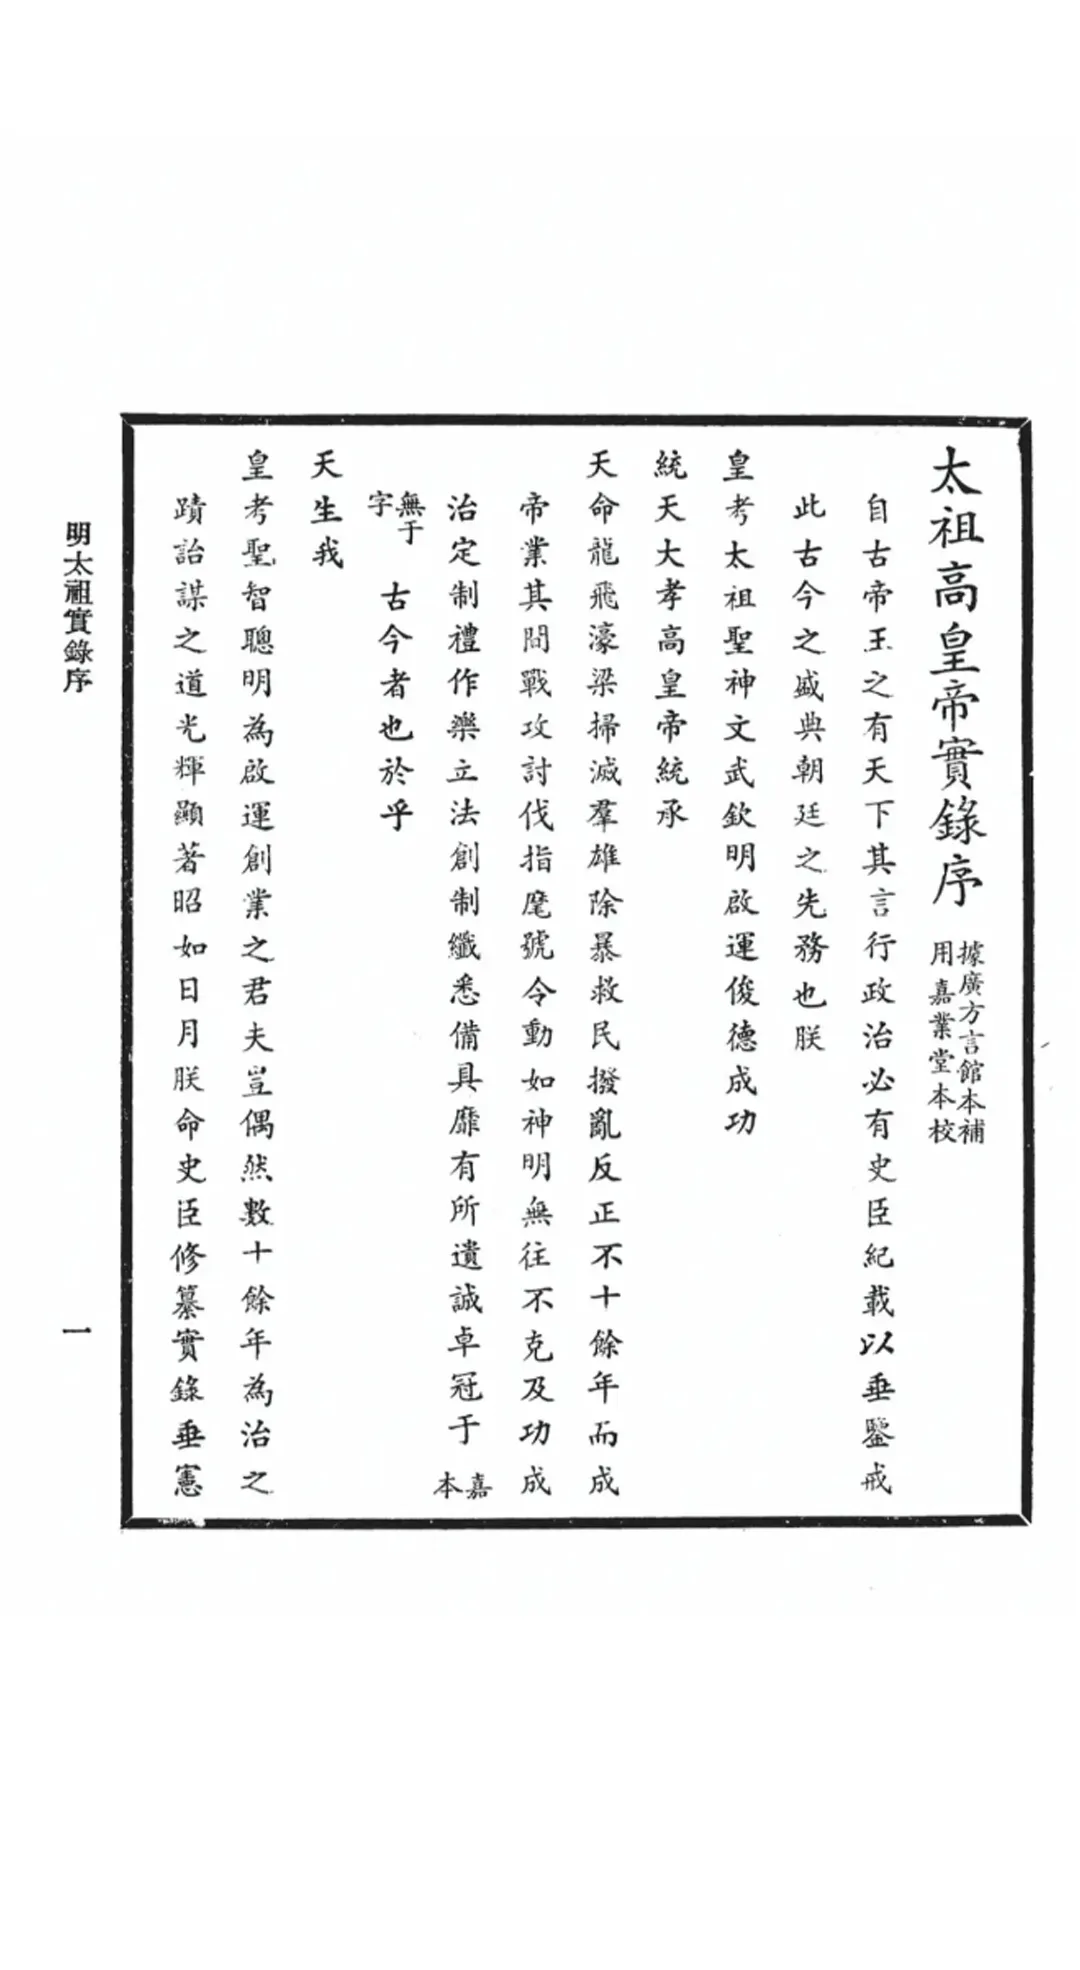 太祖高皇帝實錄序
據廣方言館本補
用嘉業堂本校
自古帝王之有天下其言行政治必有史臣紀載以垂鑒戒
此古今之盛典朝廷之先務也朕
皇考太祖聖神文武欽明啟運俊德成功
統天大孝高皇帝統承
天命龍飛濠梁掃滅羣雄除暴救民撥亂反正不十餘年而成
帝業其間戰攻討伐指麾號令動如神明無往不克及功成
治定制禮作樂立法創制纖悉備具靡有所遺誠卓冠于
嘉
本
無于
字
古今者也於乎
天生我
皇考聖智聰明為啟運創業之君夫豈偶然數十餘年為治之
蹟詒謀之道光輝顯著昭如日月朕命史臣修纂實錄垂憲
明太祖實錄序
一